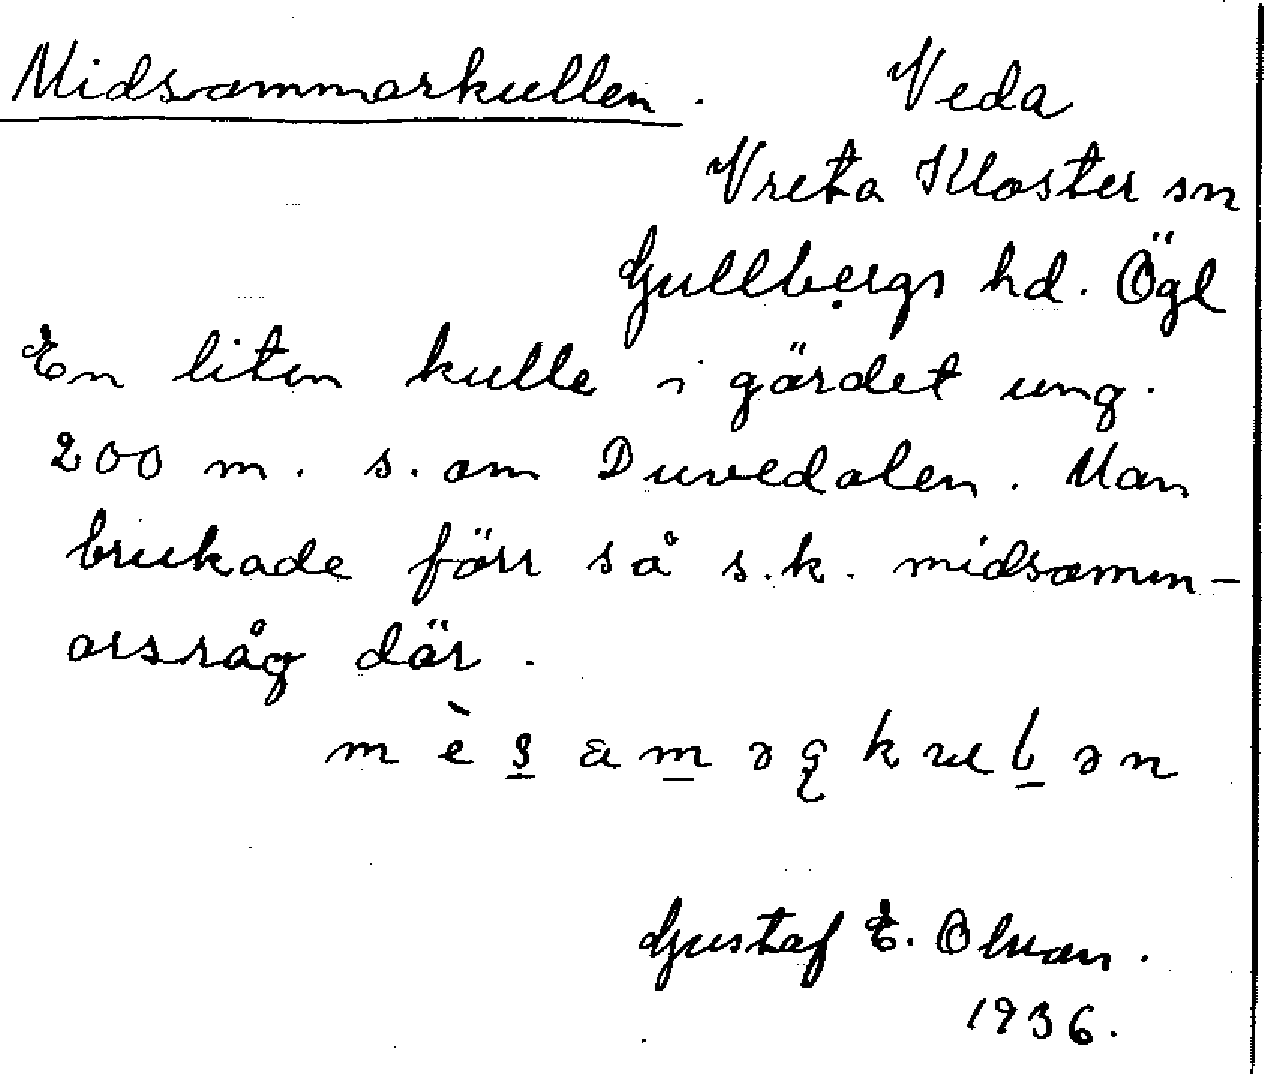 Midsommarkullen. Veda
Vreta Kloster sn
Gullbergs hd. Ögl
En liten kulle i gärdet ung.
200 m. s. om Duvedalen. Man
brukade förr så s.k. midsomm-
arsråg där.
Gustaf E.
1936.